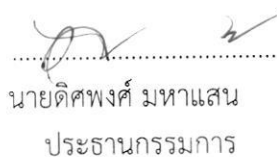 นายดิศพงศ์ มหาแสน
ประธานกรรมการ